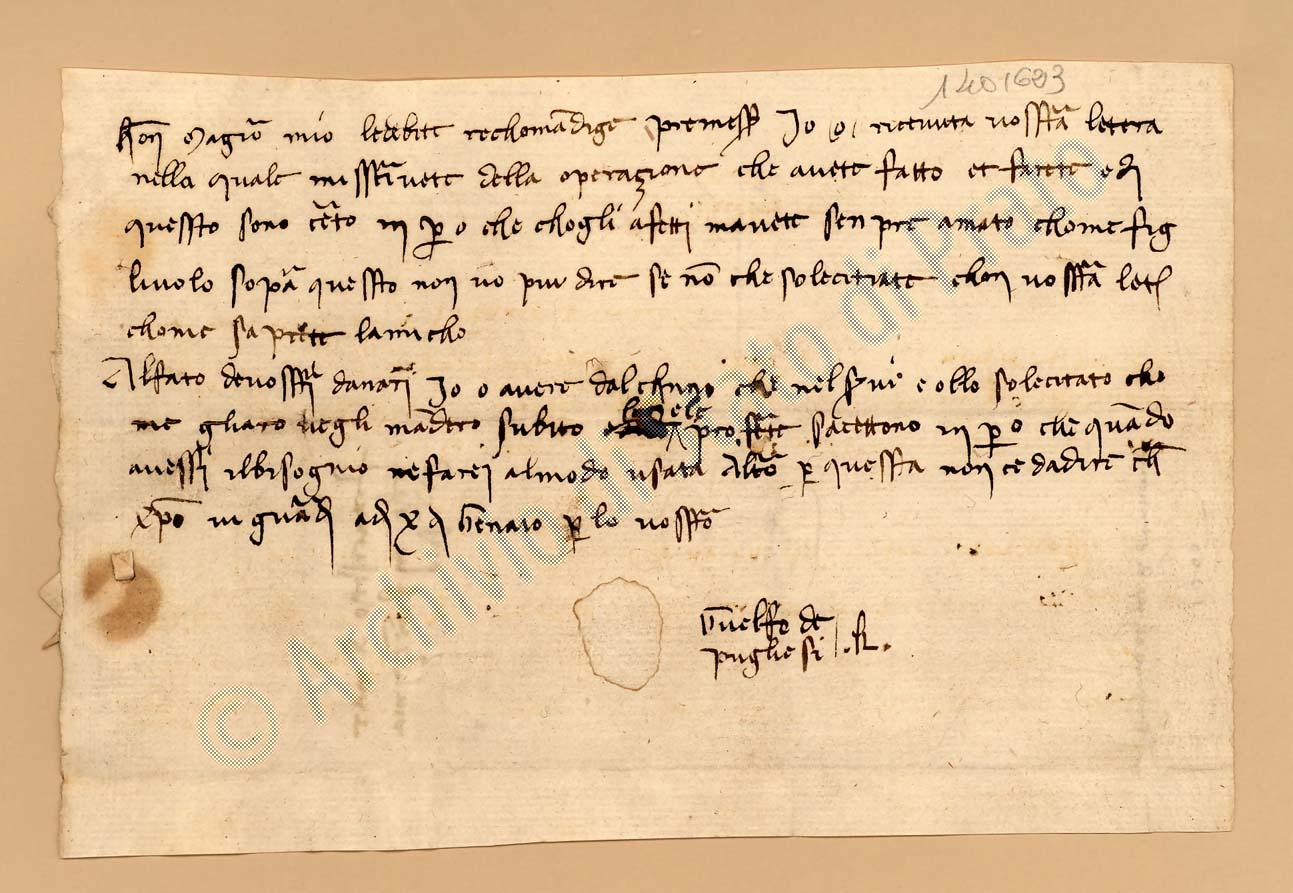 1401693
magiore mio le debite rechomādigie premesse Io o ricevuta vosstra letera
nella quale mi sscrivete della operazione che avete fatto et facete e di
quessto sono certo in per o che chogli afetti mavete senpre amato chome fig
livolo sopra quessto non vo piu dire se nō che solecitiate chon vosstra let
chome sapete lamicho
Al fato de vosstri danari Io o avere dal che nel e ollo solecitato cho
me gliaro vegli māderò subito le proferte sacettono in per o che quādo
avessi il bisognio ne farei al modo usata altro per quessta non ce da dire
xpo vi guardi adi X di Gennaio per lo vosstro
Guelfo de
pugliesi .R.
© Archivio di Stato di Prato